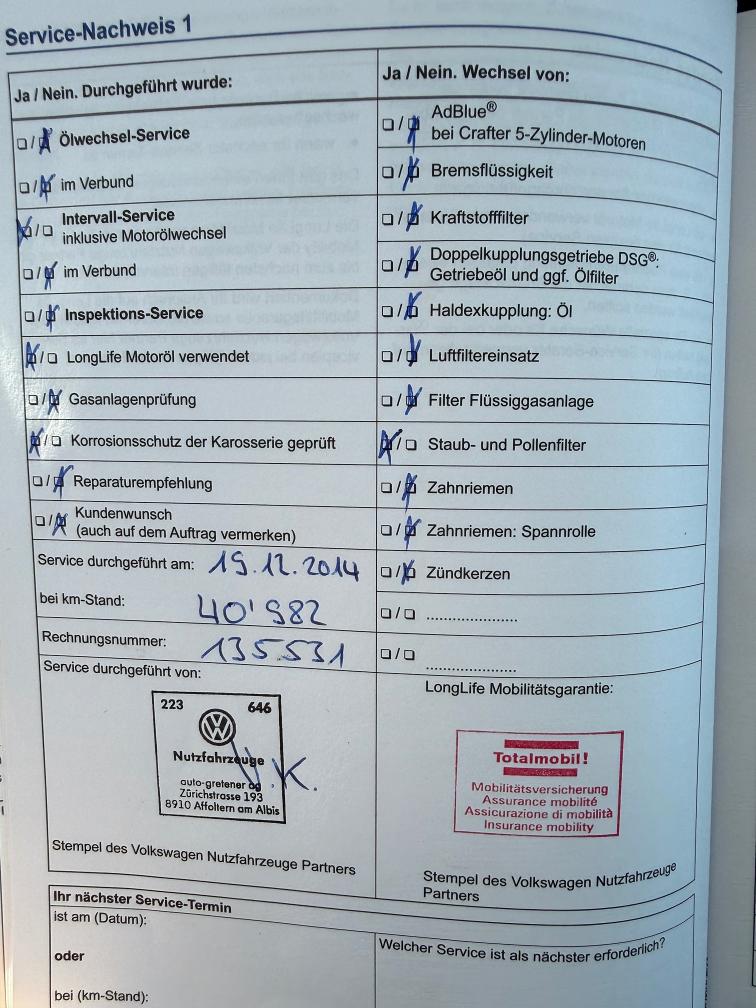 Service-Nachweis 1
Ja / Nein. Durchgeführt wurde:
Ölwechsel-Service
im Verbund
Intervall-Service
inklusive Motorölwechsel
im Verbund
Inspektions-Service
LongLife Motoröl verwendet
Gasanlagenprüfung
Korrosionsschutz der Karosserie geprüft
Reparaturempfehlung
Kundenwunsch
(auch auf dem Auftrag vermerken)
Service durchgeführt am: 19.12.2014
bei km-Stand: 40'982
Rechnungsnummer: 135531
Service durchgeführt von:
223 646
Nutzfahrzeuge
auto-gretener ag
Zürichstrasse 193
8910 Affoltern am Albis
V.K.
Stempel des Volkswagen Nutzfahrzeuge Partners
Ja / Nein. Wechsel von:
AdBlue®
bei Crafter 5-Zylinder-Motoren
Bremsflüssigkeit
Kraftstofffilter
Doppelkupplungsgetriebe DSG®:
Getriebeöl und ggf. Ölfilter
Haldexkupplung: Öl
Luftfiltereinsatz
Filter Flüssiggasanlage
Staub- und Pollenfilter
Zahnriemen
Zahnriemen: Spannrolle
Zündkerzen
LongLife Mobilitätsgarantie:
Totalmobil!
Mobilitätsversicherung
Assurance mobilité
Assicurazione di mobilità
Insurance mobility
Stempel des Volkswagen Nutzfahrzeuge
Partners
Ihr nächster Service-Termin
ist am (Datum):
oder
bei (km-Stand):
Welcher Service ist als nächster erforderlich?